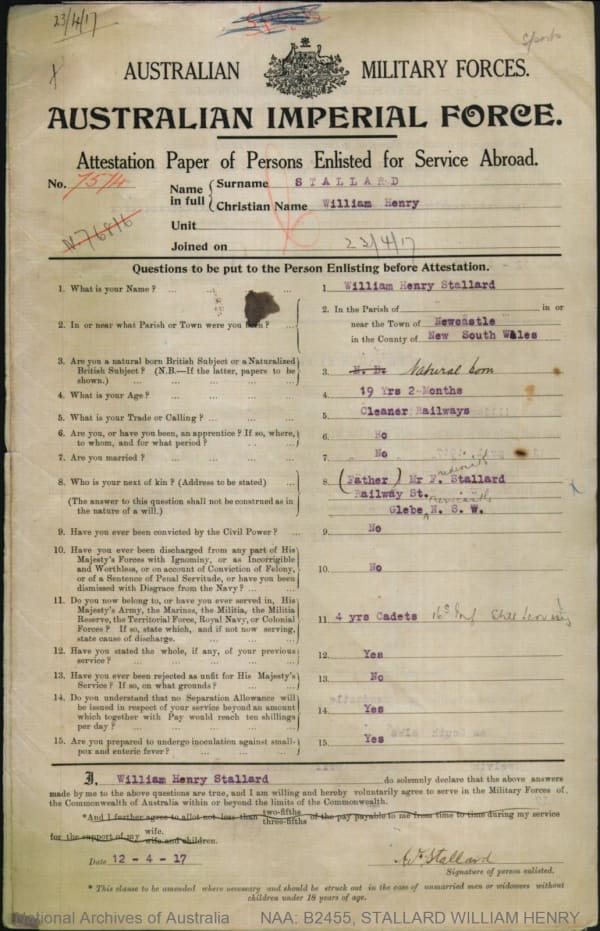 23/4/17
Sports
AUSTRALIAN MILITARY FORCES.
AUSTRALIAN IMPERIAL FORCE.
Attestation Paper of Persons Enlisted for Service Abroad.
No. 7574
Name in full { Surname STALLARD
Christian Name William Henry
N.76816
Unit
Joined on 23/4/17
Questions to be put to the Person Enlisting before Attestation.
1. What is your Name ? ... ... ... 1. William Henry Stallard
2. In or near what Parish or Town were you born ? ... 2. In the Parish of in or
near the Town of Newcastle
in the County of New South Wales
3. Are you a natural born British Subject or a Naturalized
British Subject ? (N.B.—If the latter, papers to be
shown.) ... ... ... ... 3. N. B. Natural born
4. What is your Age ? ... ... ... 4. 19 Yrs 2-Months
5. What is your Trade or Calling ? ... ... ... 5. Cleaner Railways
6. Are you, or have you been, an apprentice ? If so, where,
to whom, and for what period ? ... ... 6. No
7. Are you married ? ... ... ... ... 7. No
8. Who is your next of kin ? (Address to be stated) ... 8. (Father) Mr F. Stallard
Railway St.
(The answer to this question shall not be construed as in
the nature of a will.) Glebe Newcastle N. S. W.
9. Have you ever been convicted by the Civil Power ? ... 9. No
10. Have you ever been discharged from any part of His
Majesty's Forces with Ignominy, or as Incorrigible
and Worthless, or on account of Conviction of Felony,
or of a Sentence of Penal Servitude, or have you been
dismissed with Disgrace from the Navy ? ... ... 10. No
11. Do you now belong to, or have you ever served in, His
Majesty's Army, the Marines, the Militia, the Militia
Reserve, the Territorial Force, Royal Navy, or Colonial
Forces ? If so, state which, and if not now serving,
state cause of discharge. ... ... ... 11. 4 yrs Cadets 16th Inf Still serving
12. Have you stated the whole, if any, of your previous
service ? ... ... ... ... 12. Yes
13. Have you ever been rejected as unfit for His Majesty's
Service ? If so, on what grounds ? ... ... 13. No
14. Do you understand that no Separation Allowance will
be issued in respect of your service beyond an amount
which together with Pay would reach ten shillings
per day ? ... ... ... ... 14. Yes
15. Are you prepared to undergo inoculation against small-
pox and enteric fever ? ... ... ... 15. Yes
I, William Henry Stallard do solemnly declare that the above answers
made by me to the above questions are true, and I am willing and hereby voluntarily agree to serve in the Military Forces of
the Commonwealth of Australia within or beyond the limits of the Commonwealth.
*And I further agree to allot not less than two-fifths three-fifths of the pay payable to me from time to time during my service
for the support of my wife. wife and children.
Date 12-4-17 Stallard
Signature of person enlisted.
* This clause to be amended where necessary and should be struck out in the case of unmarried men or widowers without
children under 18 years of age.
National Archives of Australia NAA: B2455, STALLARD WILLIAM HENRY